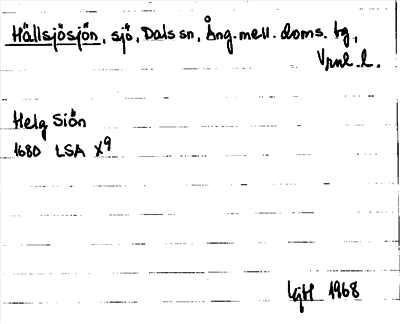 Hällsjösjön, sjö, Dals sn, Ång. mell. doms. tg,
Vrnl. l.
Helg Siön
1680 LSA X9
1968